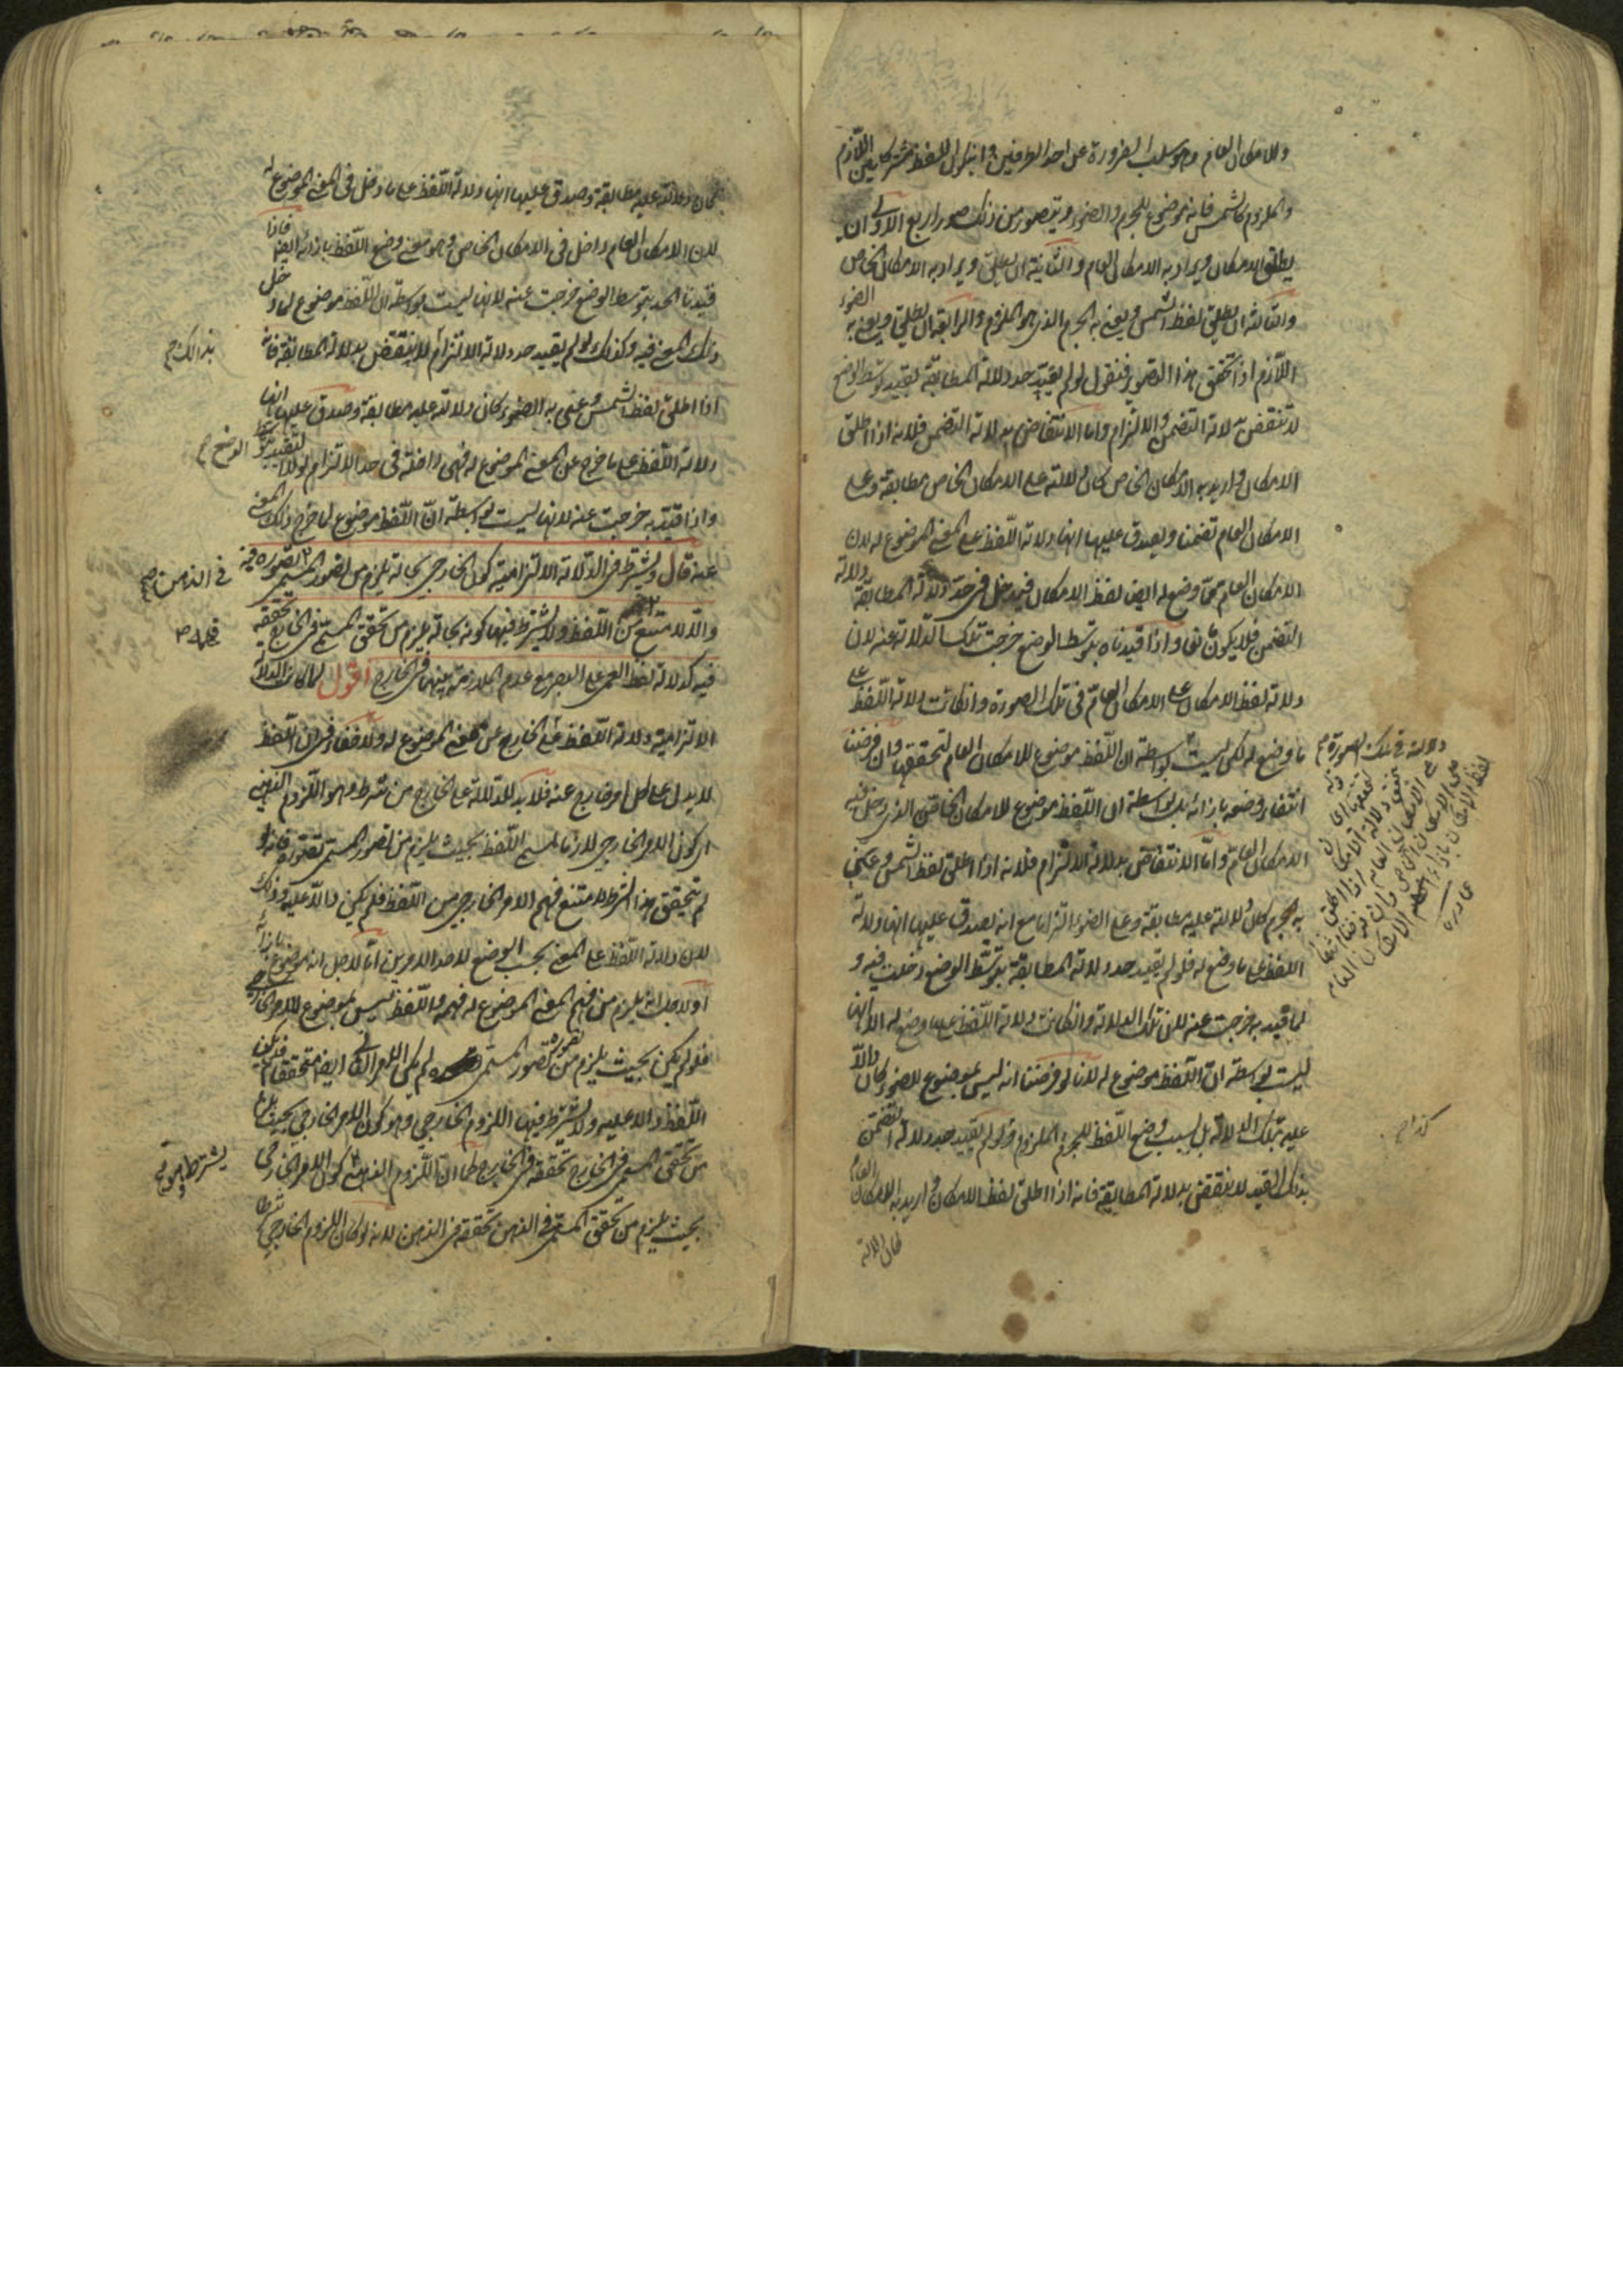 والامكان العام وهو سلب الضرورة عن احد الطرفين وان يكون اللفظ مشتركا بين اللازم
والملزوم كالشمس فانه موضوع للجرم والضوء ويتصور من ذلك صور اربع الاولى ان
يطلق الامكان ويراد به الامكان العام والثانية ان يطلق ويراد به الامكان الخاص
والثالثة ان يطلق لفظ الشمس ويعنى به الجرم الذى هو الملزوم والرابعة ان يطلق ويعنى به الضوء
اللازم اذا تحقق هذا التصوير فنقول لو لم يقيد حد دلالة المطابقة بقيد توسط الوضع
لانتقض بدلالة التضمن والالتزام واما الانتقاض بدلالة التضمن فلانه اذا اطلق
الامكان واريد به الامكان الخاص كان دلالته على الامكان الخاص مطابقة وعلى
الامكان العام تضمنا ويصدق عليها انها دلالة اللفظ على المعنى الموضوع له لان
الامكان العام مما وضع له ايضا لفظ الامكان فيدخل فى حد دلالة المطابقة دلالة
التضمن فلا يكون مانعا واذا قيدناه بتوسط الوضع خرجت تلك الدلالة عنه لان
دلالة لفظ الامكان على الامكان العام فى تلك الصورة وان كانت دلالة اللفظ على
ما وضع له لكن ليست بواسطة ان اللفظ موضوع للامكان العام لتحققها وان فرضنا
انتفاء وضعه بازائه بل بواسطة ان اللفظ موضوع للامكان الخاص الذى دخل فيه
الامكان العام واما الانتقاض بدلالة الالتزام فلانه اذا اطلق لفظ الشمس وعنى
به الجرم كان دلالته عليه مطابقة وعلى الضوء التزاما مع انه يصدق عليها انها دلالة
اللفظ على ما وضع له فلو لم يقيد حد دلالة المطابقة بتوسط الوضع دخلت فيه و
لما قيد به خرجت عنه لان تلك الدلالة وان كانت دلالة اللفظ على ما وضع له الا انها
ليست بواسطة ان اللفظ موضوع له لانا لو فرضنا انه ليس بموضوع للضوء كان دالا
عليه بتلك الدلالة بل بسبب وضع اللفظ للجرم الملزوم وكذا لو لم يقيد حد دلالة التضمن
بذلك القيد لانتقض بدلالة المطابقة فانه اذا اطلق لفظ الامكان واريد به الامكان العام
كان دلالته
دلالته فى تلك الصورة
كان دلالته عليه مطابقة وصدق عليها انها دلالة اللفظ على ما دخل فى المعنى الموضوع له
لان الامكان العام داخل فى الامكان الخاص وهو معنى وضع اللفظ بازائه ايضا فاذا
قيدنا الحد بتوسط الوضع خرجت عنه لانها ليست بواسطة ان اللفظ موضوع لما دخل
ذلك المعنى فيه وكذلك لو لم يقيد حد دلالة الالتزام لانتقض بدلالة المطابقة فانه
بذالك
اذا اطلق لفظ الشمس وعنى به الضوء كان دلالته عليه مطابقة وصدق عليها انها
دلالة اللفظ على ما خرج عن المعنى الموضوع له فهى داخلة فى حد الالتزام لولا
التقييد بتوسط الوضع
واذا قيد به خرجت عنه لانها ليست بواسطة ان اللفظ موضوع لما خرج ذلك المعنى
عنه قال ويشترط فى الدلالة الالتزامية كون الخارجى بحالة يلزم من تصور المسمى تصوره فيه
فى الذهن
والا لامتنع فهمه من اللفظ ولا يشترط فيها كونه بحالة يلزم من تحقق المسمى فى الخارج تحققه
فيه كدلالة لفظ العمى على البصر مع عدم الملازمة بينهما فى الخارج اقول لما كانت الدلالة
الالتزامية دلالة اللفظ على الخارج عن معنى الموضوع له ولا خفاء فى ان اللفظ
لا يدل على كل امر خارج عنه فلا بد للدلالة على الخارج من شرط وهو اللزوم الذهنى
اى كون الامر الخارجى لازما لمسمى اللفظ بحيث يلزم من تصور المسمى تصوره فانه لو
لم يتحقق هذا الشرط لامتنع فهم الامر الخارجى من اللفظ فلم يكن دالا عليه وذلك
لان دلالة اللفظ على المعنى بحسب الوضع لاحد الامرين اما لاجل انه موضوع بازائه
او لاجل انه يلزم من فهم المعنى الموضوع له فهمه واللفظ ليس بموضوع للامر الخارجى
فلو لم يكن بحيث يلزم من تصور المسمى تصوره لم يكن الامر الثانى ايضا متحققا فلم يكن
اللفظ دالا عليه ولا يشترط فيها اللزوم الخارجى وهو كون الامر الخارجى بحيث يلزم
من تحقق المسمى فى الخارج تحققه فى الخارج كما ان اللزوم الذهنى كون الامر الخارجى
بحيث يلزم من تحقق المسمى فى الذهن تحققه فى الذهن لانه لو كان اللزوم الخارجى شرطا